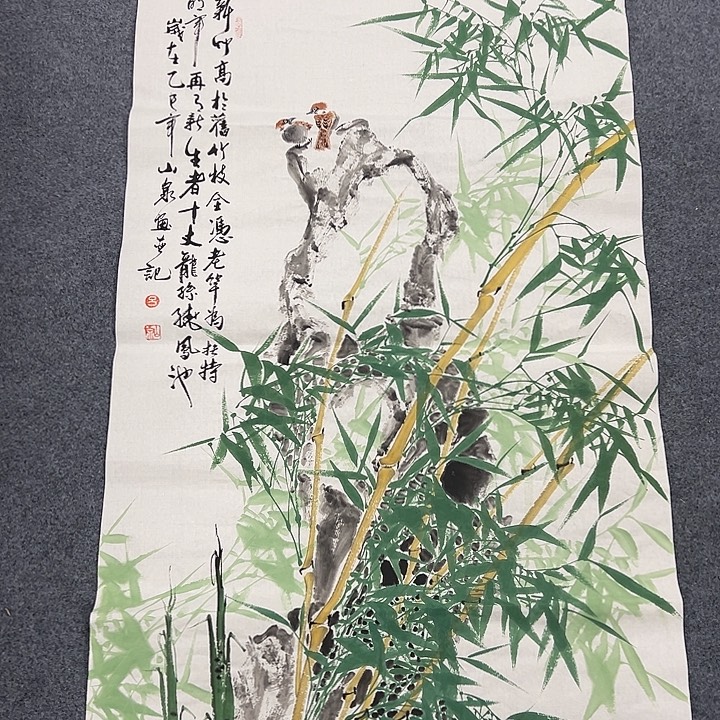 新竹高於舊竹枝全憑老竿為扶持
明年再有新生者十丈龍孫繞鳳池
歲在乙巳年山泉畫並記